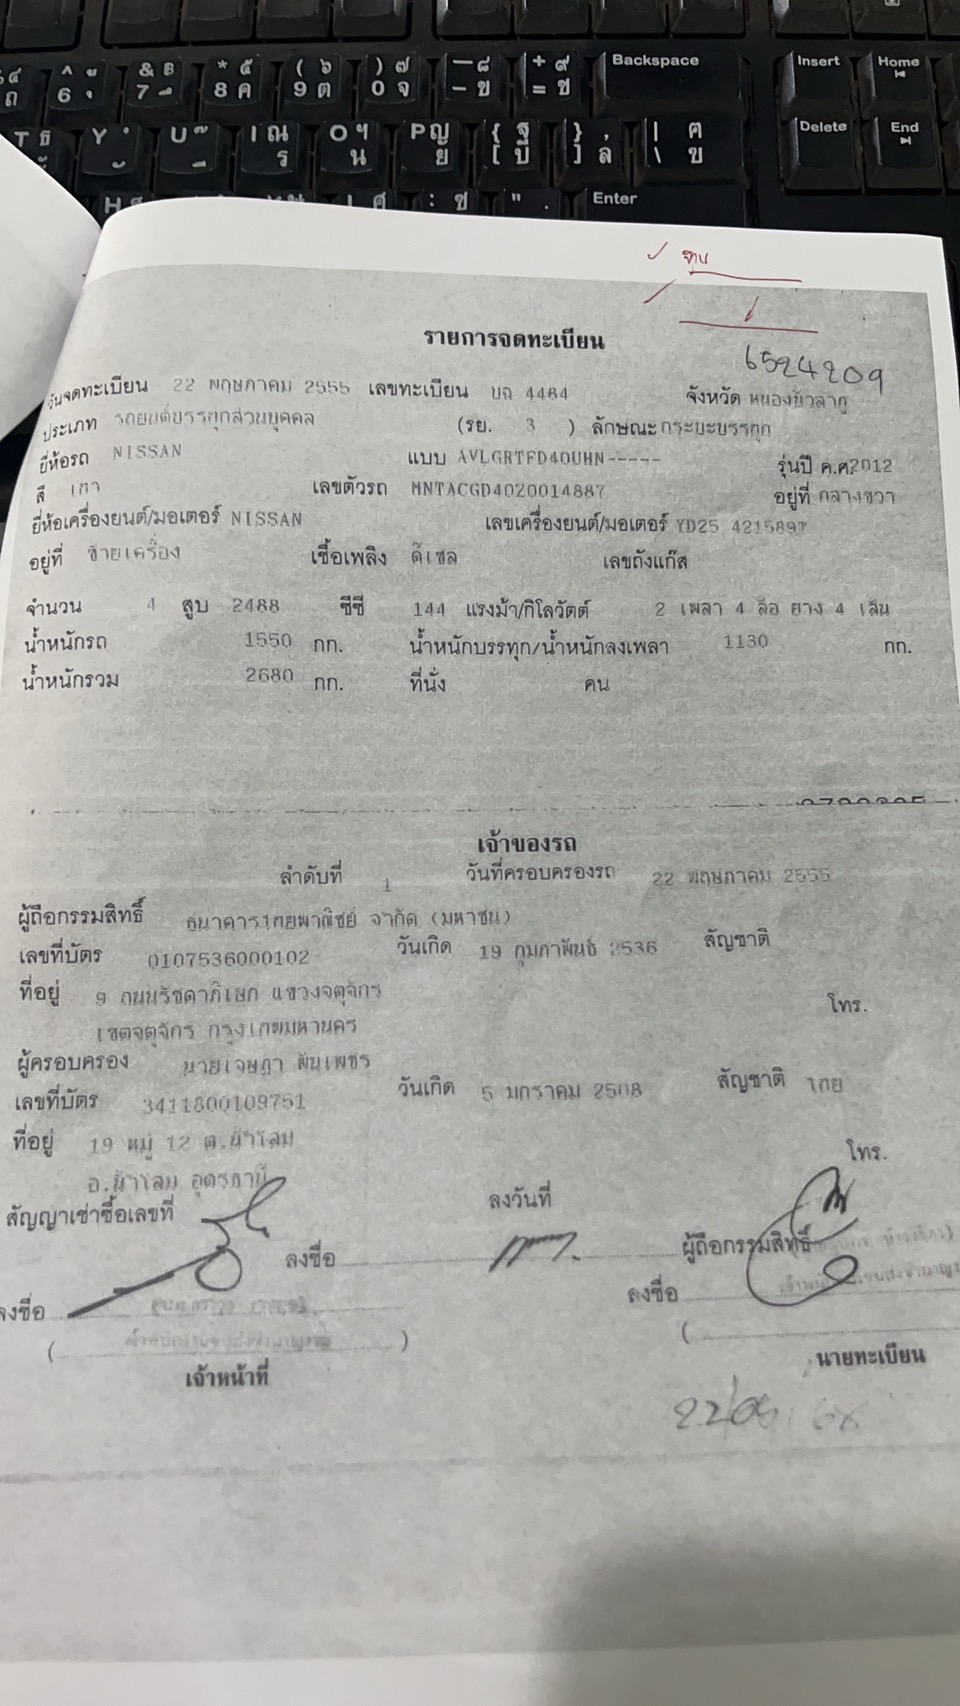 Backspace
Insert
Home
Delete
End
Enter
รายการจดทะเบียน
6524209
วันจดทะเบียน 22 พฤษภาคม 2555 เลขทะเบียน บฉ 4484 จังหวัด หนองบัวลำภู
ประเภท รถยนต์บรรทุกส่วนบุคคล (รย. 3 ) ลักษณะ กระบะบรรทุก
ยี่ห้อรถ NISSAN แบบ AVLGRTFD40UHN----- รุ่นปี ค.ศ. 2012
สี เทา เลขตัวรถ MNTACGD4020014887 อยู่ที่ กลางขวา
ยี่ห้อเครื่องยนต์/มอเตอร์ NISSAN เลขเครื่องยนต์/มอเตอร์ YD25 421589T
อยู่ที่ ซ้ายเครื่อง เชื้อเพลิง ดีเซล เลขถังแก๊ส
จำนวน 4 สูบ 2488 ซีซี 144 แรงม้า/กิโลวัตต์ 2 เพลา 4 ล้อ ยาง 4 เส้น
น้ำหนักรถ 1550 กก. น้ำหนักบรรทุก/น้ำหนักลงเพลา 1130 กก.
น้ำหนักรวม 2680 กก. ที่นั่ง คน
เจ้าของรถ
ลำดับที่ 1 วันที่ครอบครองรถ 22 พฤษภาคม 2555
ผู้ถือกรรมสิทธิ์ ธนาคารไทยพาณิชย์ จำกัด (มหาชน)
เลขที่บัตร 0107536000102 วันเกิด 19 กุมภาพันธ์ 2536 สัญชาติ
ที่อยู่ 9 ถนนรัชดาภิเษก แขวงจตุจักร โทร.
เขตจตุจักร กรุงเทพมหานคร
ผู้ครอบครอง นายเจษฎา พันเพชร
เลขที่บัตร 3411800109751 วันเกิด 5 มกราคม 2508 สัญชาติ ไทย
ที่อยู่ 19 หมู่ 12 ต.น้ำโสม โทร.
อ.น้ำโสม อุดรธานี
สัญญาเช่าซื้อเลขที่ ลงวันที่
ลงชื่อ ผู้ถือกรรมสิทธิ์
ลงชื่อ ลงชื่อ
( ) (
เจ้าหน้าที่ นายทะเบียน